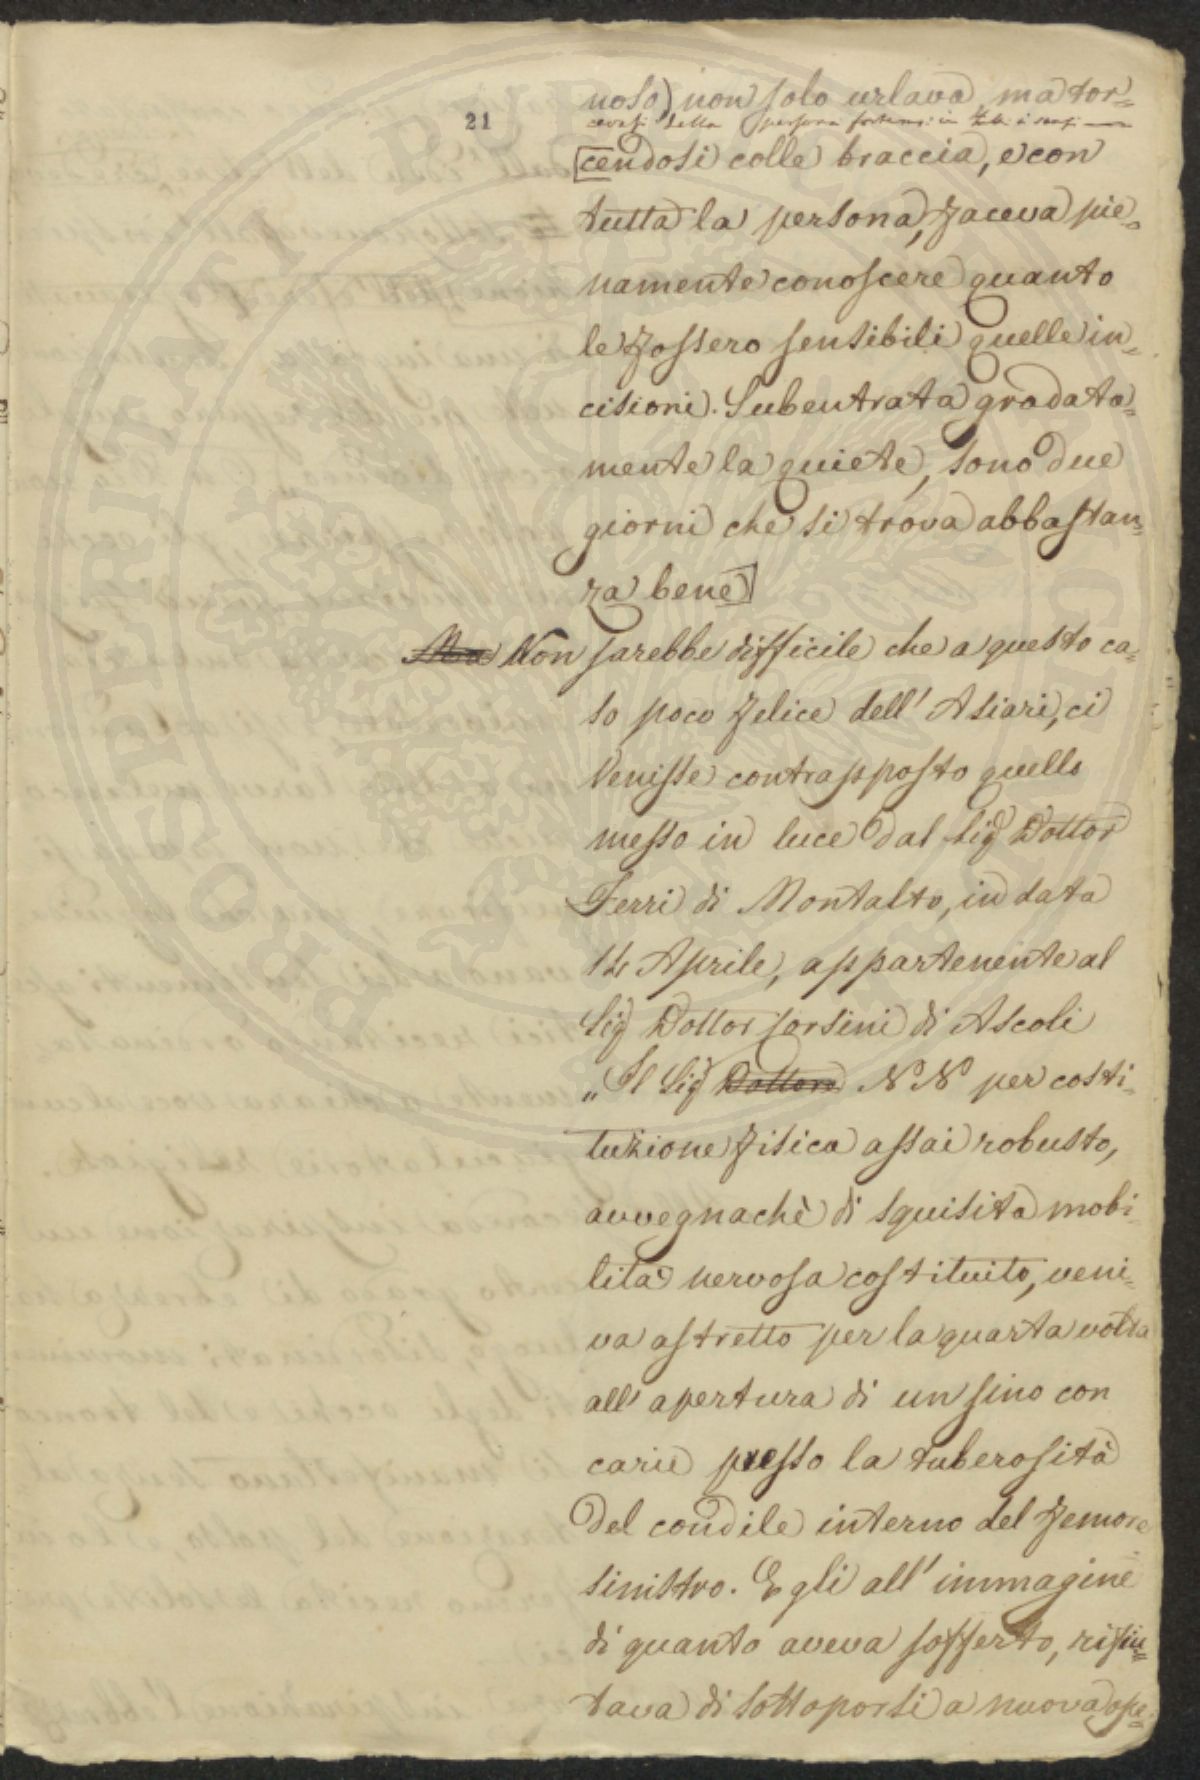 21
noso) non solo urlava, ma tor=
cevasi della persona fortem: in
cendosi colle braccia, e con
tutta la persona, faceva pie=
namente conoscere quanto
le fossero sensibili quelle in=
cisioni. Subentrata gradata=
mente la quiete, sono due
giorni che si trova abbastan=
za bene
Ma Non sarebbe difficile che a questo ca=
so poco felice dell' Asiari, ci
venisse contrapposto quello
messo in luce dal Sig Dottor
Ferri di Montalto, in data
14 Aprile, appartenente al
Sig Dottor Corsini di Ascoli
„Il Sig Dottore NN per costi=
tuzione fisica assai robusto,
avvegnachè di squisita mobi=
lità nervosa costituito, veni=
va astretto per la quarta volta
all' apertura di un sino con
carie presso la tuberosità
del condile interno del femore
sinistro. Egli all' immagine
di quanto aveva sofferto, rifiu=
tava di sottoporsi a nuova ope=
PROSPERITATI PUBLICAE AUGENDAE